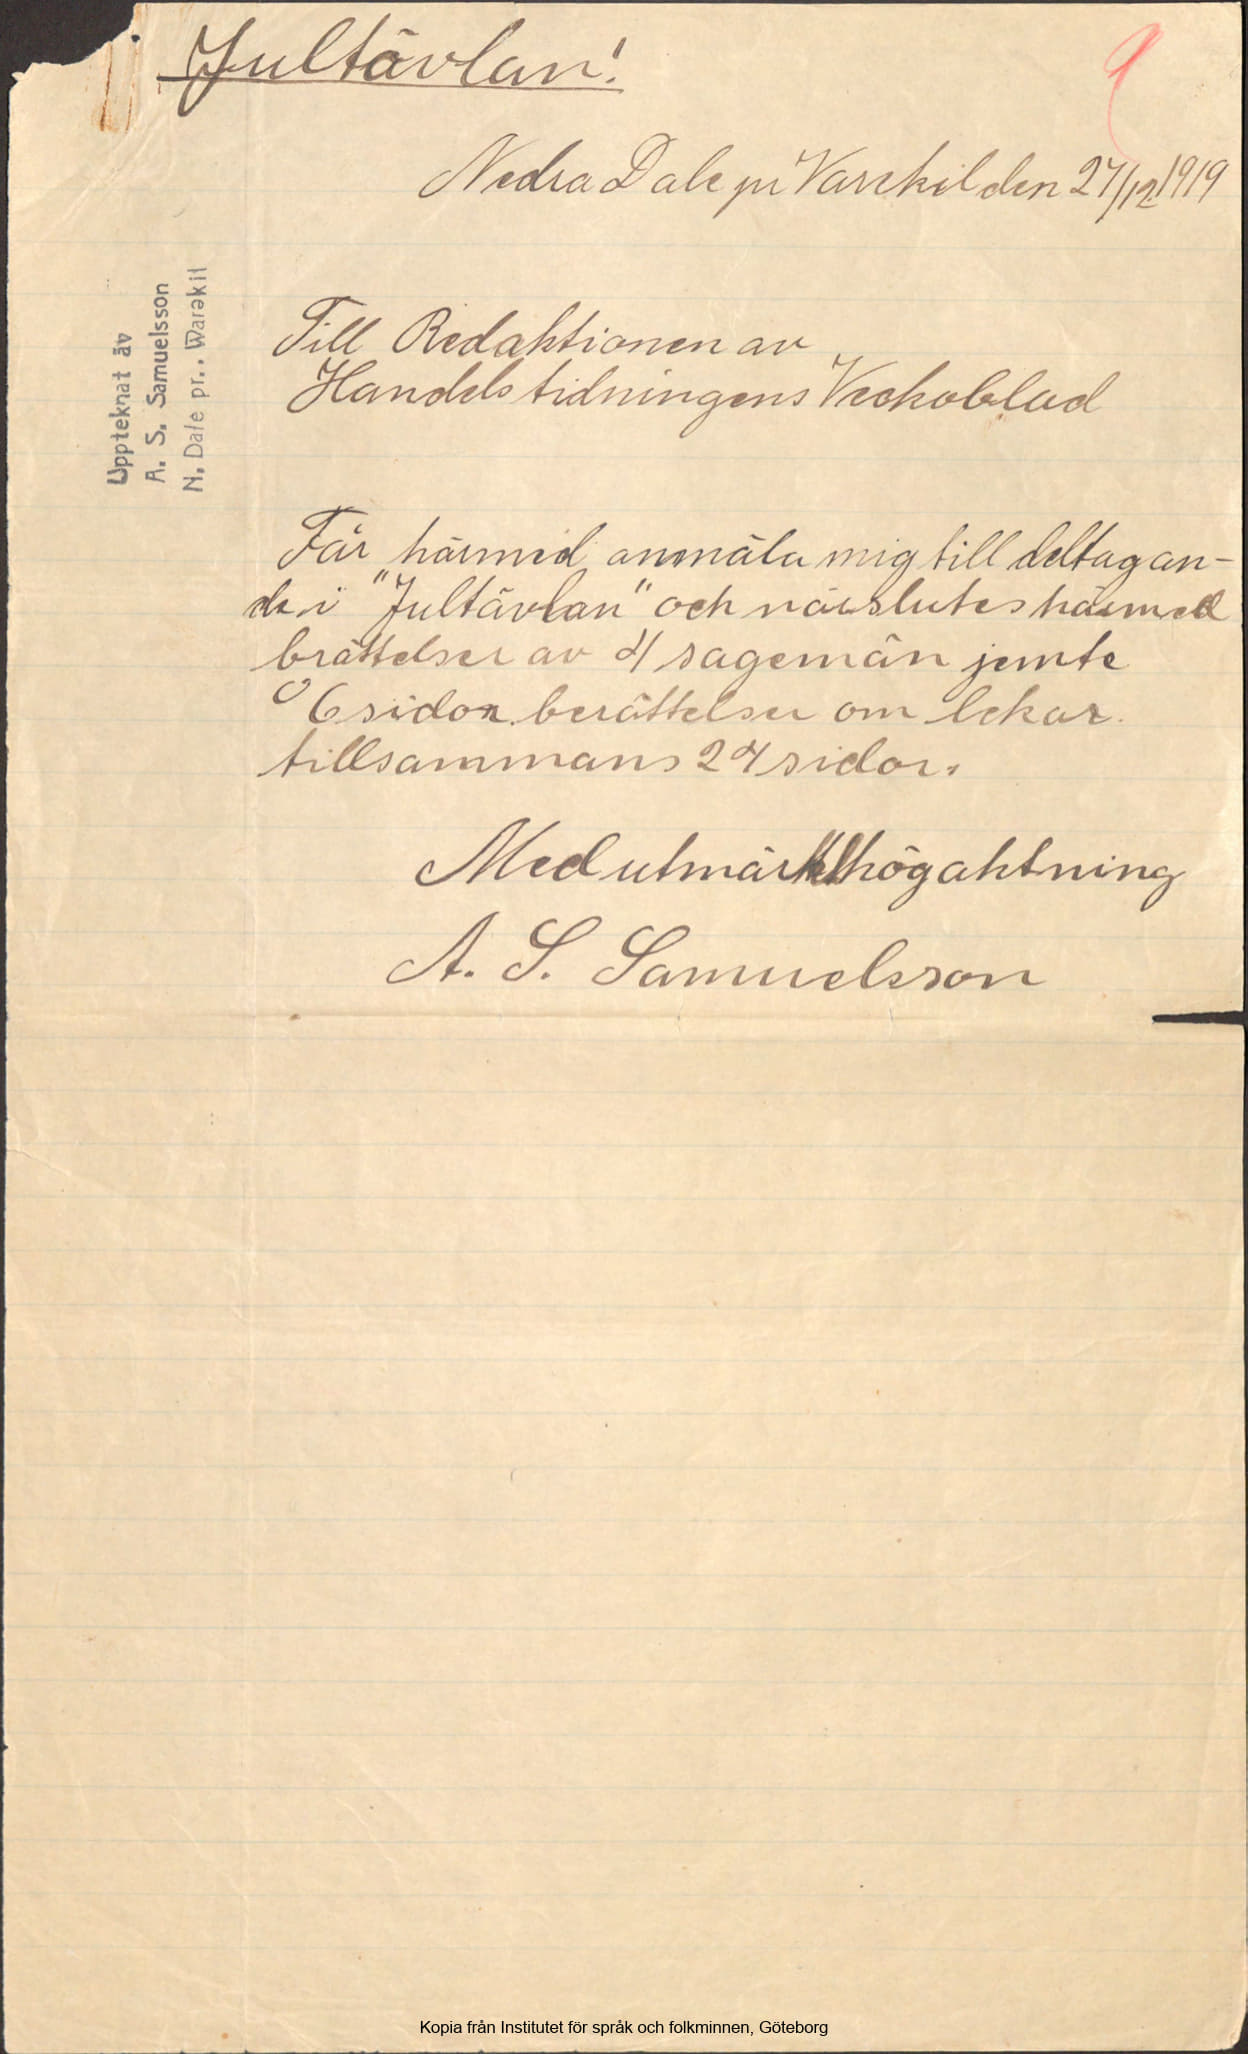 Jultävlan!
9
Nedra Dale pr Varekil den 27/12 1919
Uppteknat äv
A. S. Samuelsson
N. Dale pr., Warekil
Till Redaktionen av
Handelstidningens Veckoblad
Får härmed anmäla mig till deltagan-
de i "Jultävlan" och närslutes härmed
brättelser av 4 sagemän jemte
6 sidor berättelser om lekar.
tillsammans 24 sidor.
Med utmärkt högaktning
A. S. Samuelsson
Kopia från Institutet för språk och folkminnen, Göteborg